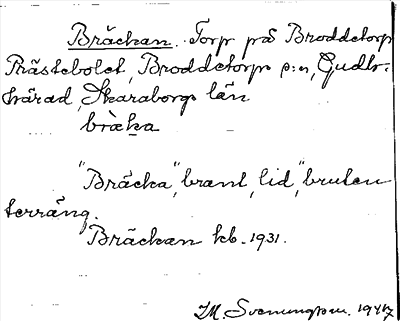 Bräckan. Torp på Broddetorps
Prästebolet, Broddetorps s:n, Gudh.
härad, Skaraborgs län
bräka
"Bräcka", brant, lid", bruten
terräng.
Bräckan kb. 1931.
M. Svenungsson. 1947